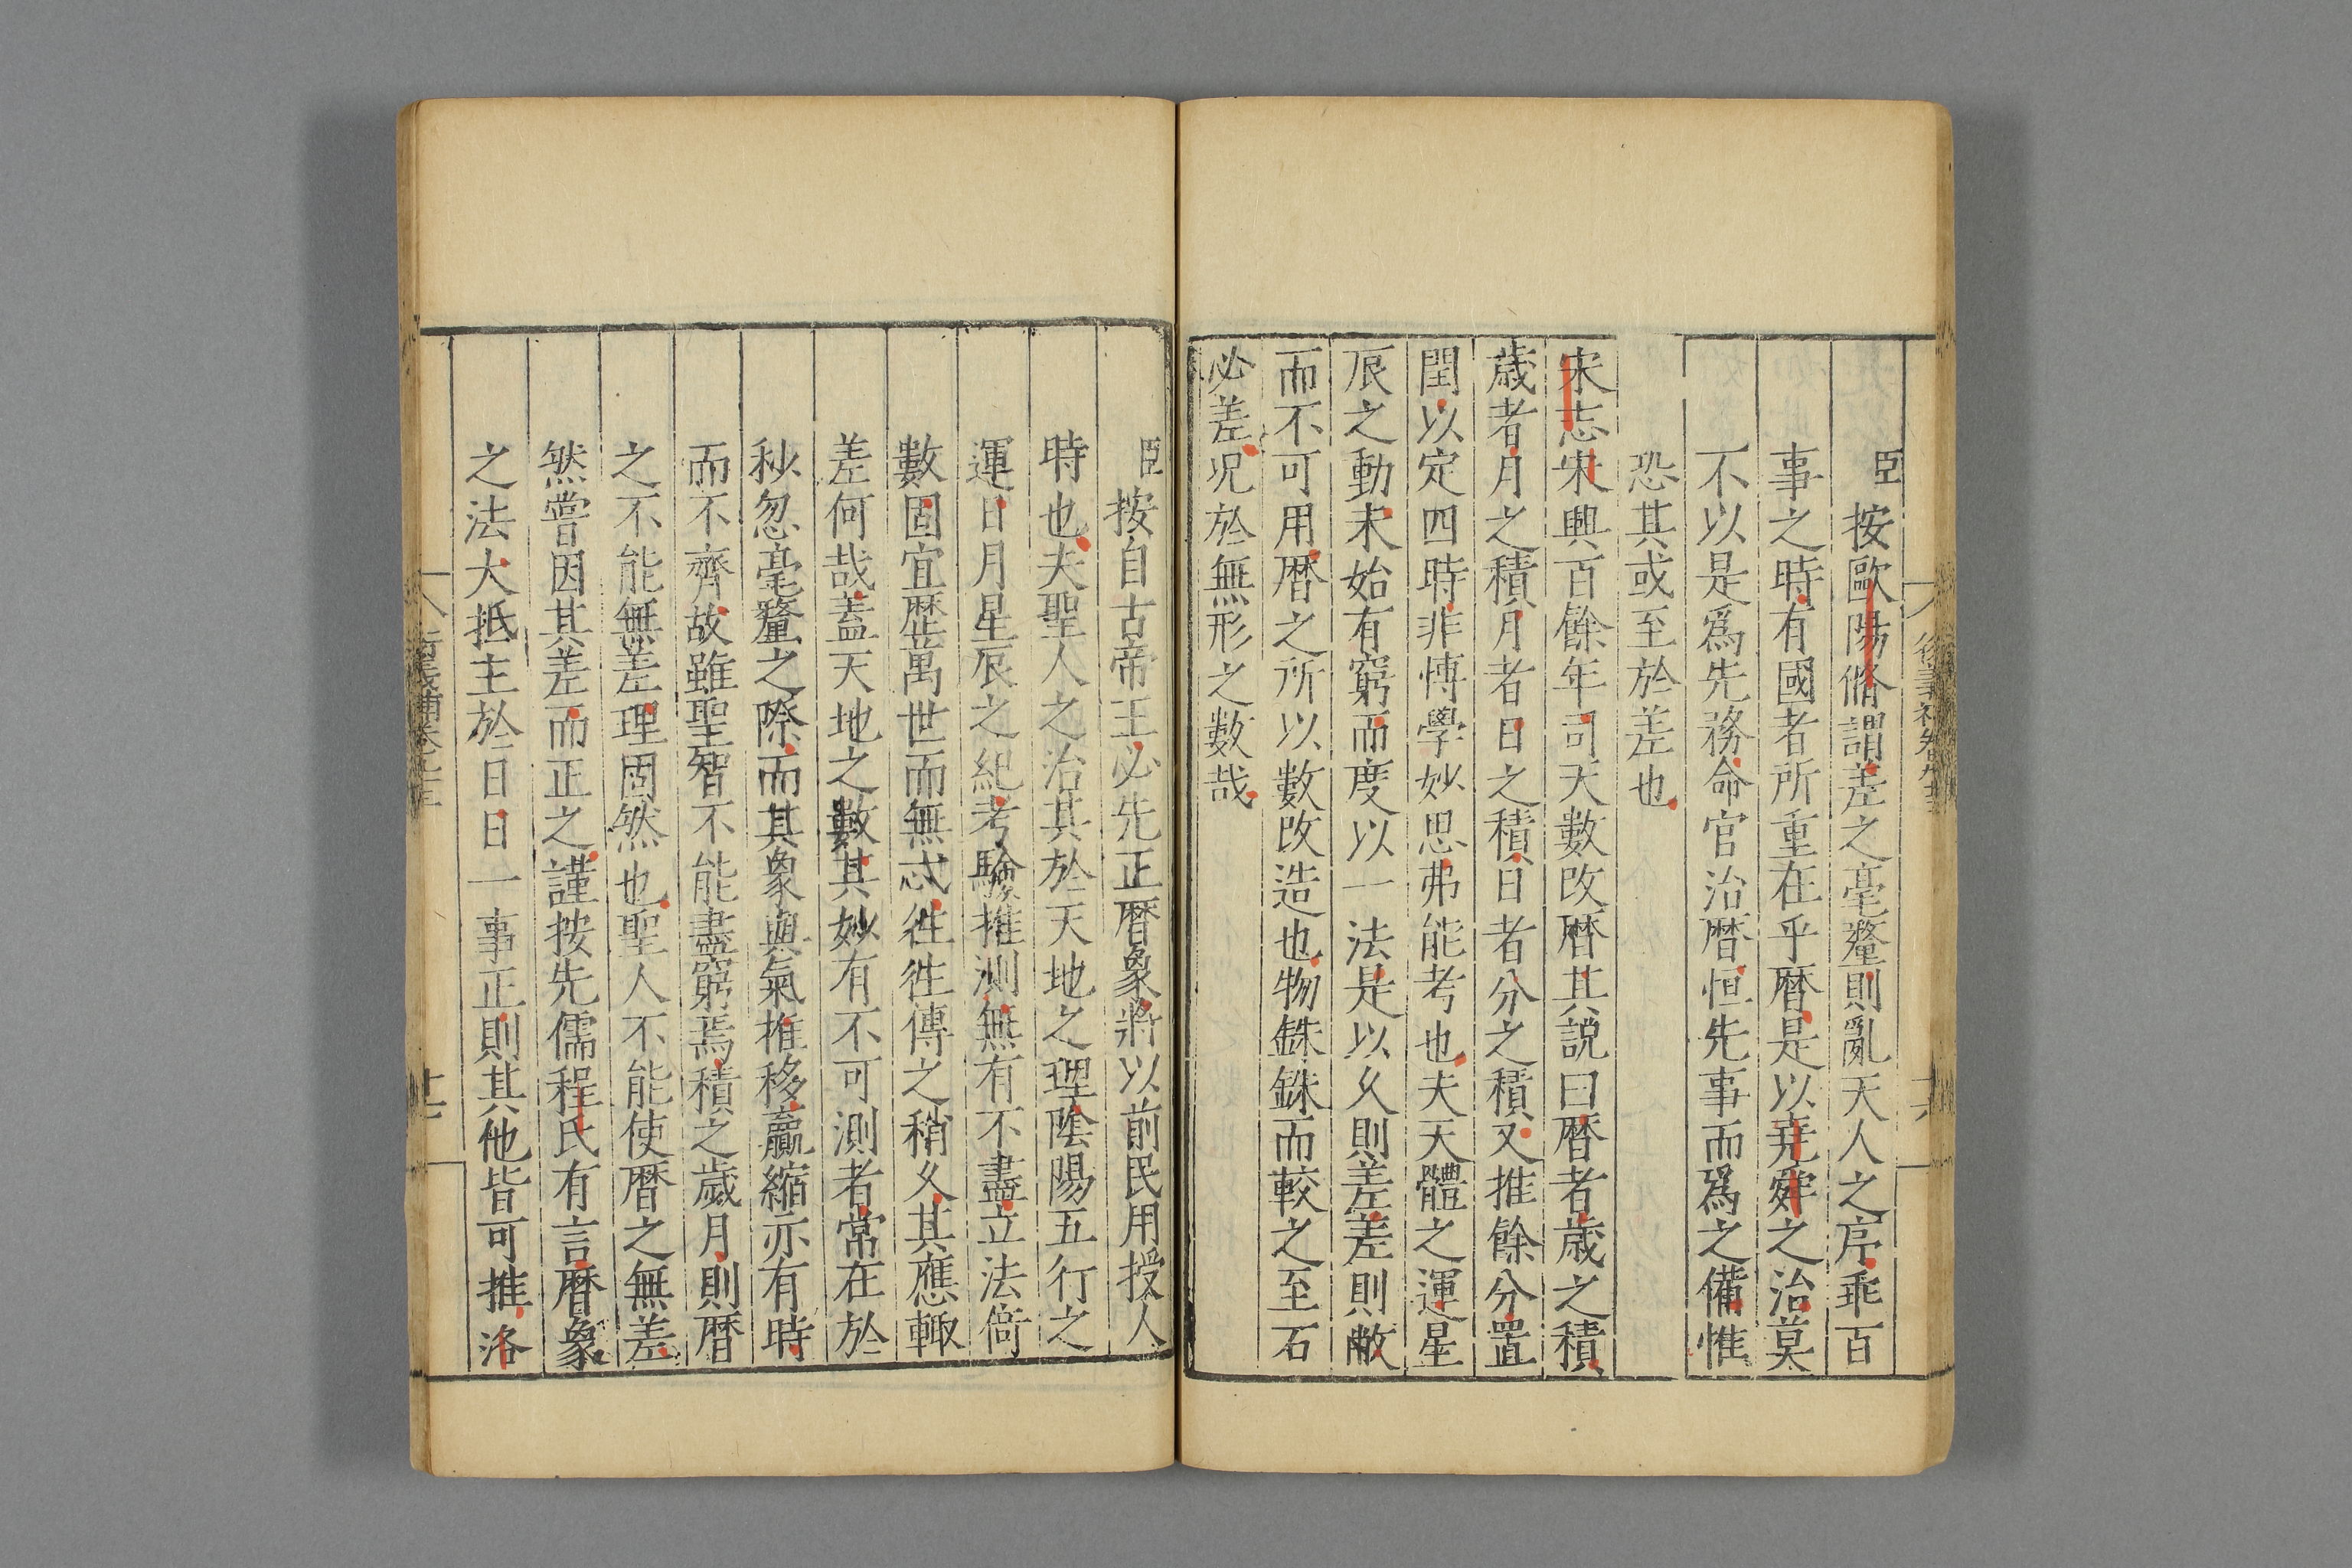 臣按歐陽脩謂差之毫釐則亂天人之序乖百
事之時有國者所重在乎曆是以堯舜之治莫
不以是爲先務命官治曆恒先事而爲之備惟
恐其或至於差也
宋志宋興百餘年司天數改曆其説曰曆者歲之積
歲者月之積月者日之積日者分之積又推餘分置
閏以定四時非博學妙思弗能考也夫天體之運星
辰之動未始有窮而度以一法是以久則差差則敝
而不可用曆之所以數改造也物銖銖而較之至石
必差况於無形之數哉
臣按自古帝王必先正曆象將以前民用授人
時也夫聖人之治其於天地之理陰陽五行之
運日月星辰之紀考驗推測無有不盡立法俻
數固宜歷萬世而無忒徃徃傳之稍久其應輙
差何哉蓋天地之數其妙有不可測者常在於
秒忽毫釐之際而其象與氣推移贏縮亦有時
而不齊故雖聖智不能盡窮焉積之歲月則曆
之不能無差理固然也聖人不能使曆之無差
然嘗因其差而正之謹按先儒程氏有言曆象
之法大抵主於日日一事正則其他皆可推洛